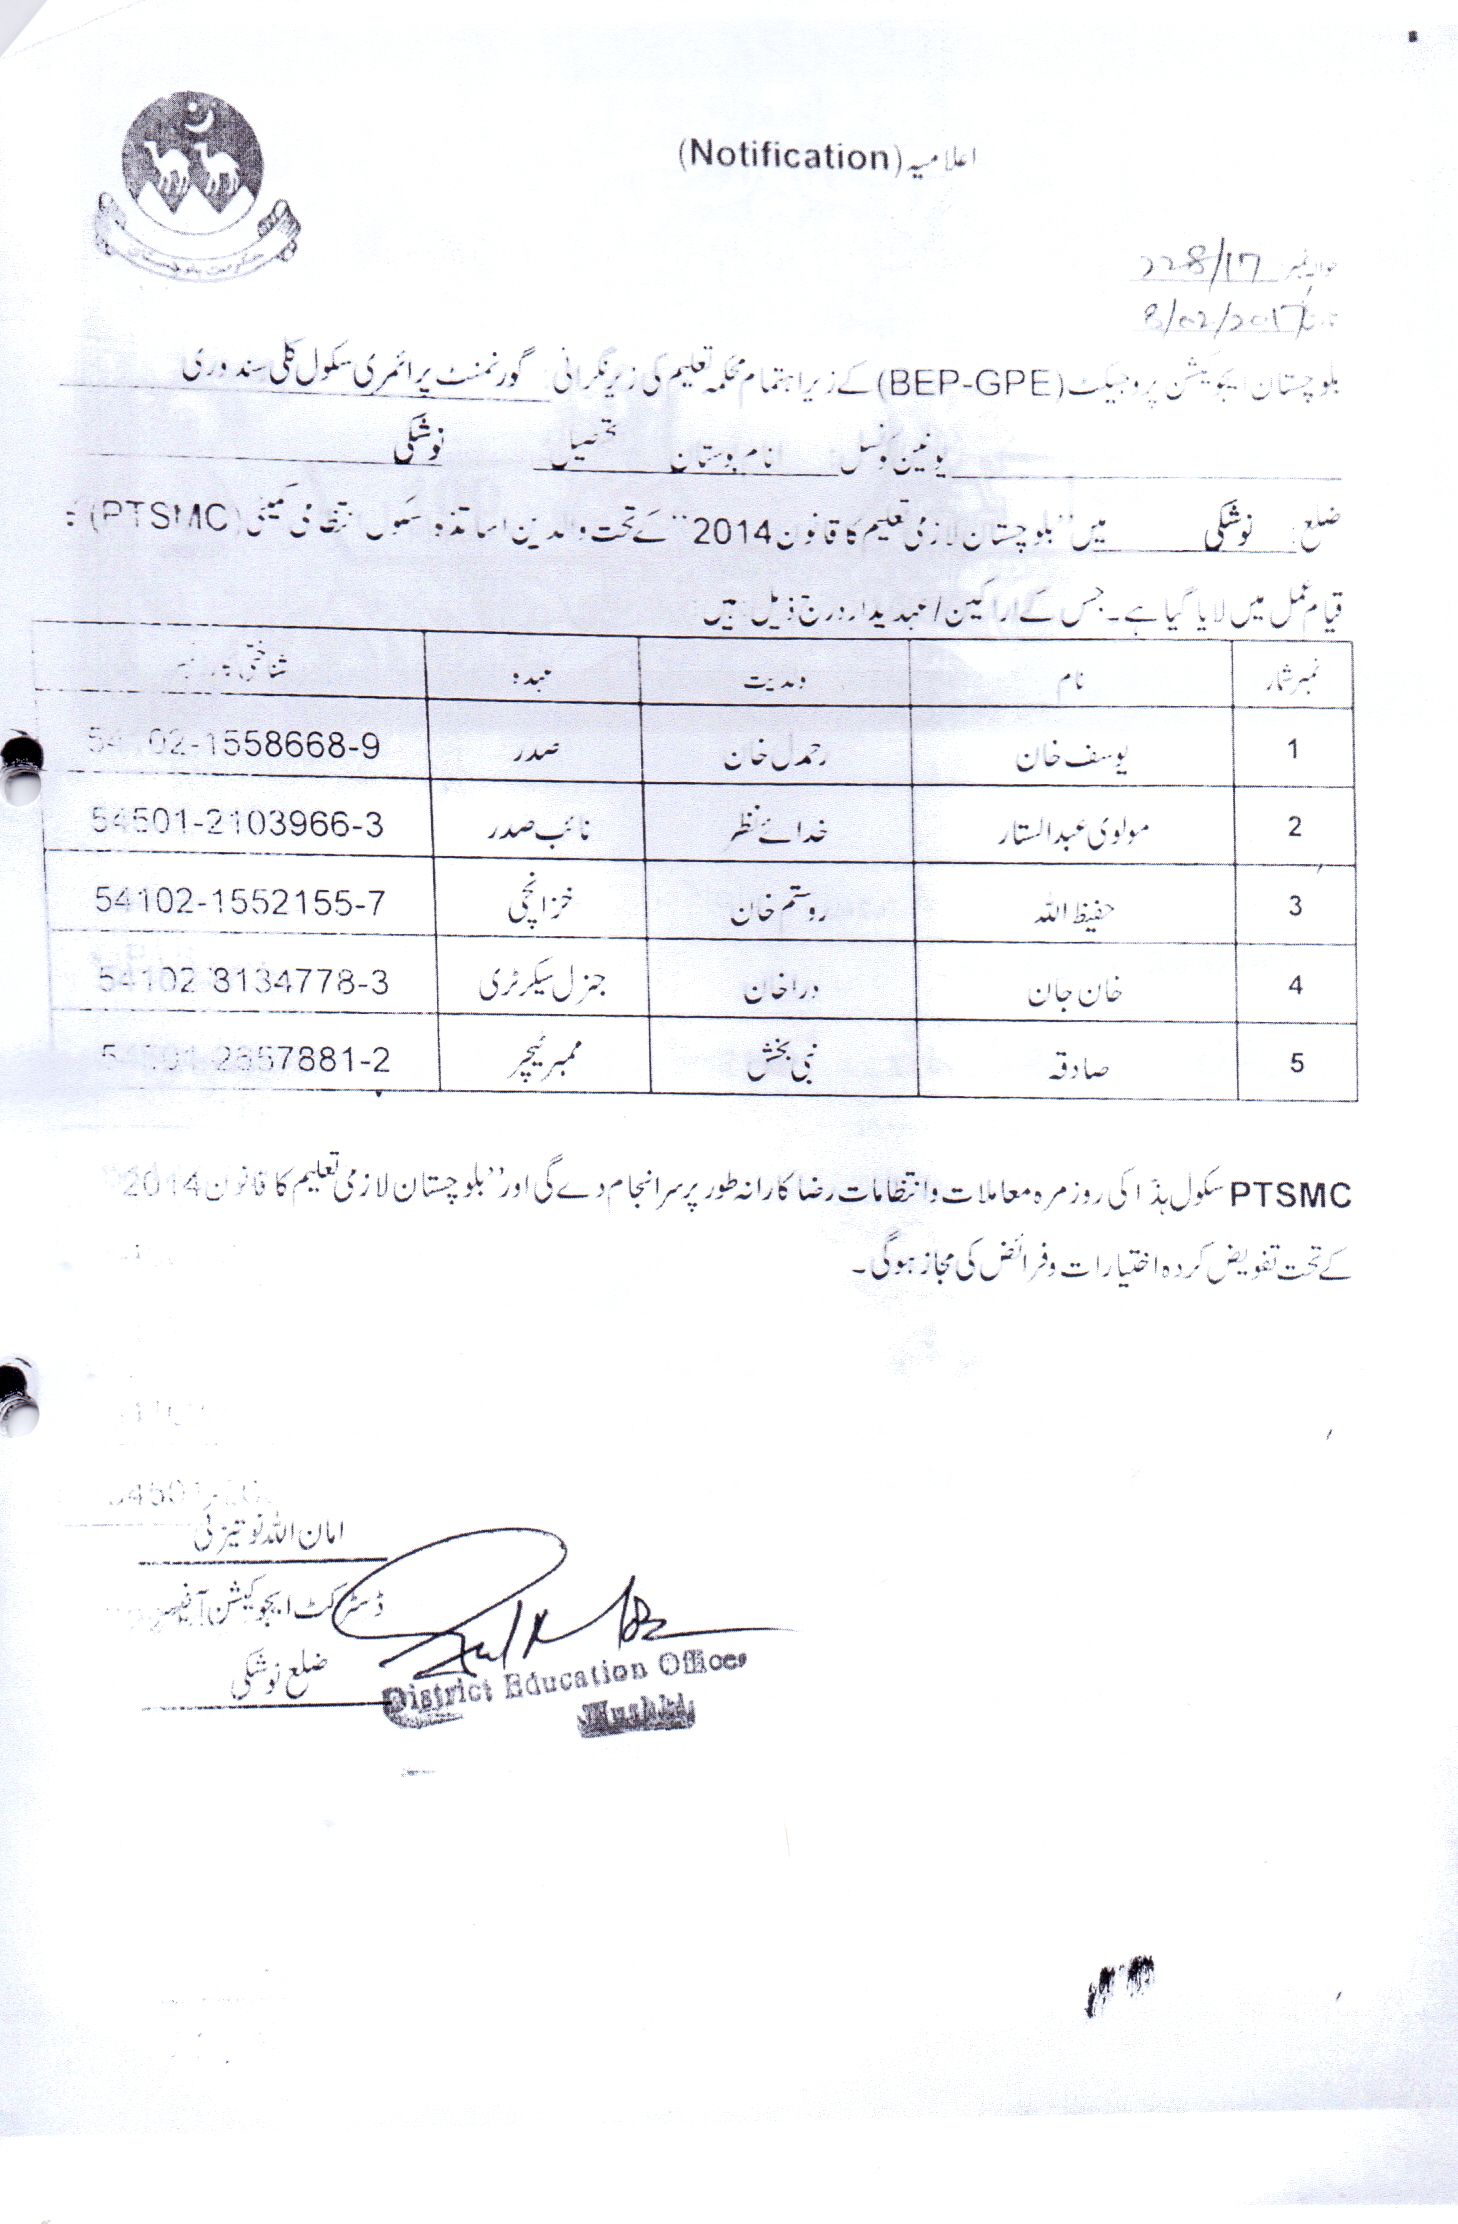 اعلامیہ (Notification)
حکومت بلوچستان
حوالہ نمبر 228/17
8/02/2017
بلوچستان ایجوکیشن پروجیکٹ (BEP-GPE) کے زیر اہتمام محکمہ تعلیم کی زیر نگرانی گورنمنٹ پرائمری سکول کلی سندوری
یونین کونسل انام بوستان تحصیل نوشکی
ضلع نوشکی میں "بلوچستان لازمی تعلیم کا قانون 2014" کے تحت والدین اساتذہ سکول انتظامی کمیٹی (PTSMC)
قیام عمل میں لایا گیا ہے۔ جس کے اراکین / عہدیدار درج ذیل ہیں
نمبر شمار نام ولدیت عہدہ شناختی
1 یوسف خان رحمدل خان صدر 54102-1558668-9
2 مولوی عبدالستار خدائے نظر نائب صدر 54501-2103966-3
3 حفیظ اللہ روستم خان خزانچی 54102-1552155-7
4 خان جان درا خان جنرل سیکرٹری 54102-3134778-3
5 صادقہ نبی بخش ممبر ٹیچر 54501-2857881-2
PTSMC سکول ہذا کی روزمرہ معاملات و انتظامات رضاکارانہ طور پر سرانجام دے گی اور "بلوچستان لازمی تعلیم کا قانون 2014"
کے تحت تفویض کردہ اختیارات و فرائض کی مجاز ہوگی۔
امان اللہ نوتیزئی
ڈسٹرکٹ ایجوکیشن آفیسر
ضلع نوشکی
District Education Officer
Nushki